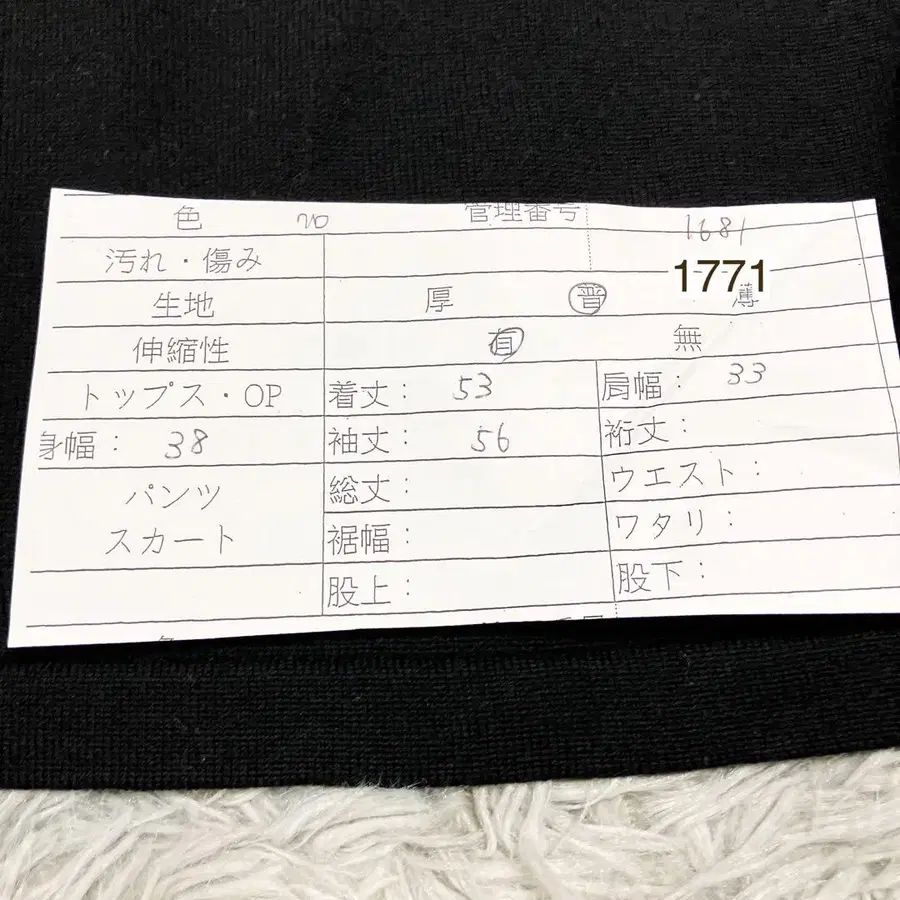 色 管理番号 1681
汚れ・傷み
1771
生地 厚 普 薄
伸縮性 有 無
トップス・OP 着丈: 53 肩幅: 33
身幅: 38 袖丈: 56 裄丈:
パンツ 総丈: ウエスト:
スカート 裾幅: ワタリ:
股上: 股下: